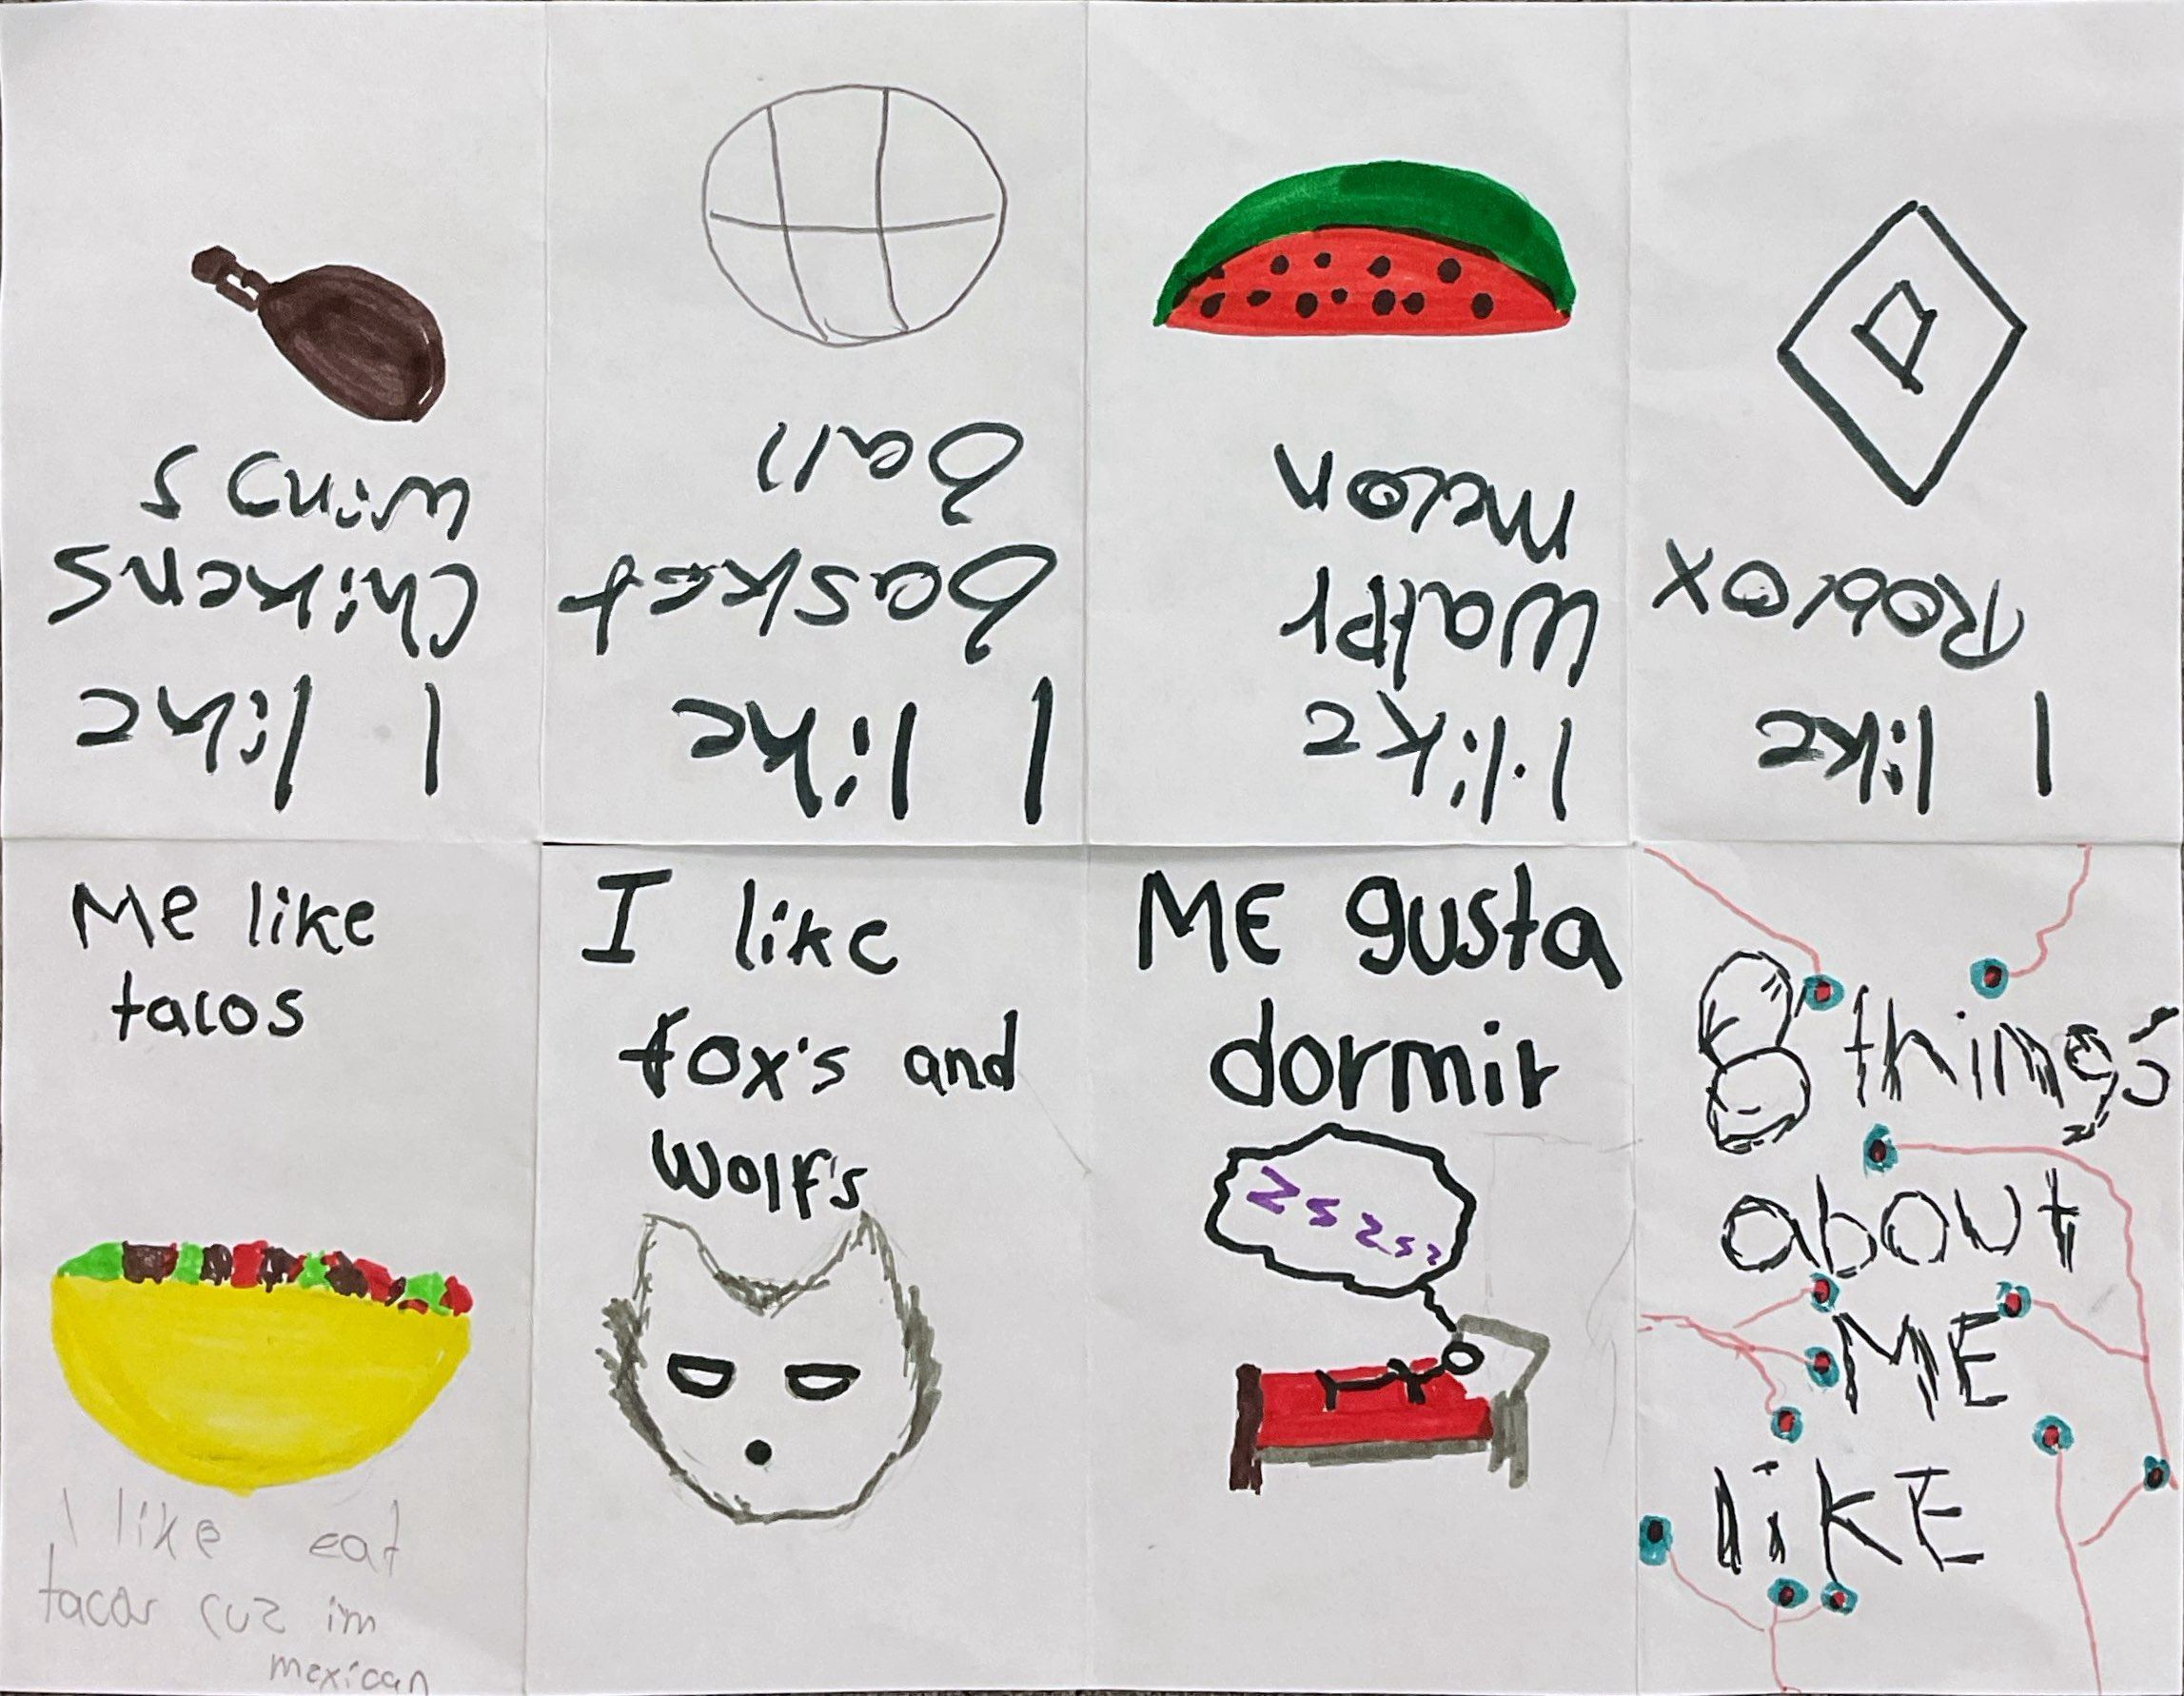 I like
Chikens
wings
I like
basket
ball
I like
Water
melon
I like
Roblox
Me like
tacos
I like eat
tacos cuz im
mexican
I like
fox's and
wolf's
ME gusta
dormir
zzzzz
8 things
about
ME
likE